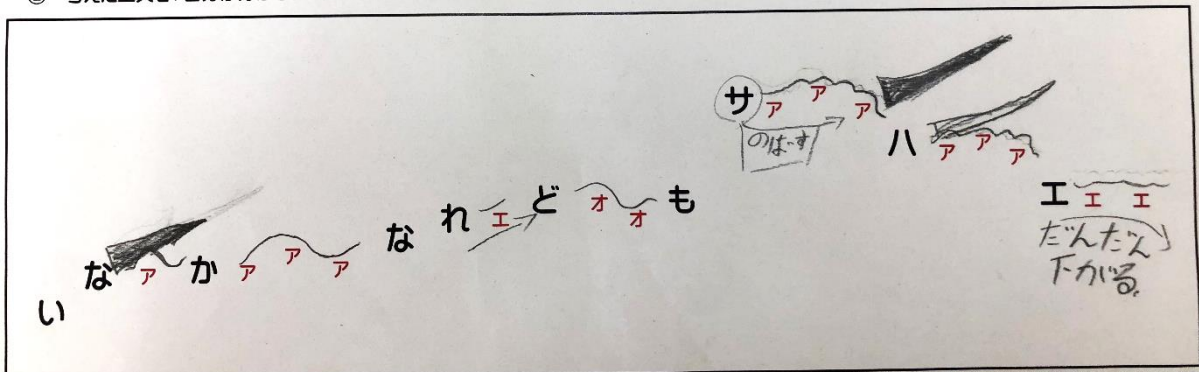 い な ア か ア ア ア な れ エ ど オ オ も サ ア ア ア ハ ア ア ア エ エ エ
のばーす
だんだん
下がる。